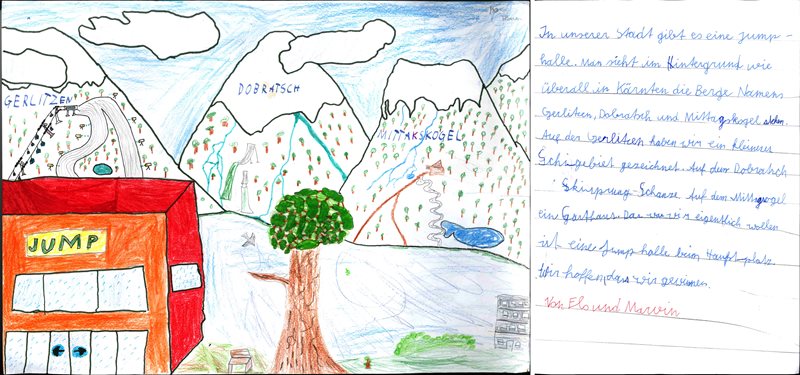 GERLITZEN
DOBRATSCH
MITTAKSKOGEL
JUMP
In unserer Stadt gibt es eine Jump-
halle. Man sieht im Hintergrund wie
überall in Kärnten die Berge Namens
Gerlitzen, Dobratsch und Mittagskogel
Auf der Gerlitzen haben wir ein kleineres
Schigebiet gezeichnet. Auf dem Dobratsch
Skisprung-Schanze Auf dem Mittagskogel
ein Gasthaus. Das was wir eigentlich wollen
ist eine Jump halle beim Hauptplatz.
Wir hoffen, dass wir gewinnen.
Von und Marvin